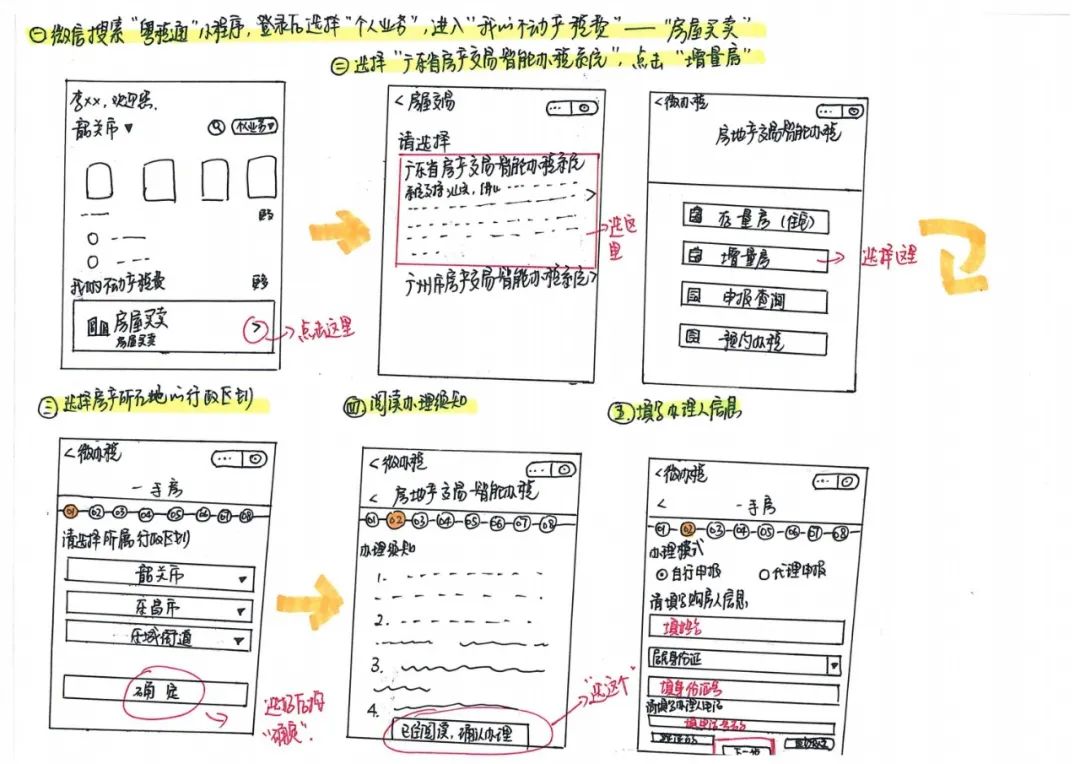 ㊀微信搜索"粤税通"小程序,登录后选择"个人业务",进入"我的不动产税费"——"房屋买卖"
㊁选择"广东省房产交易智能办税系统",点击"增量房"
李××,欢迎您.
韶关市▼
个人业务▼
更多
我的不动产税费
更多
房屋买卖
房屋买卖
>
点击这里
<房屋交易
请选择
广东省房产交易智能办税系统
>
选这里
广州市房产交易智能办税系统>
<微办税
房地产交易智能办税
存量房(住宅)
增量房
选择这里
申报查询
预约办税
㊂选择房产所在地的行政区划
<微办税
一手房
01 02 03 04 05 06 07 08
请选择所属行政区划
韶关市▼
乐昌市▼
乐城街道▼
确定
选好后按"确定".
㊃阅读办理须知
<微办税
<房地产交易智能办税
01 02 03 04 05 06 07 08
办理须知
1.
2.
3.
4.
已经阅读,确认办理
"选这个"
㊄填写办理人信息
<微办税
<一手房
01 02 03 04 05 06 07 08
办理模式
自行申报 代理申报
请填写购房人信息
填姓名
居民身份证▼
填身份证号
请填写办理人电话
填电话号码
下一步